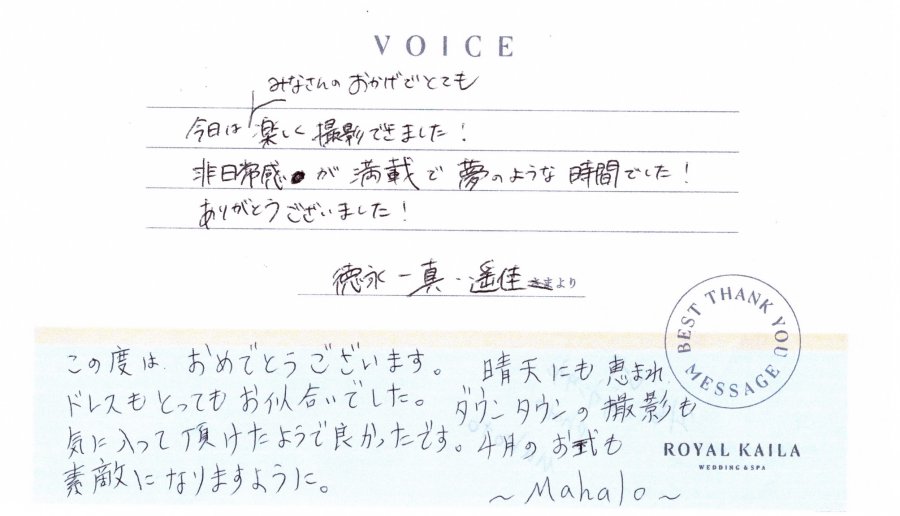 VOICE
みなさんのおかげでとても
今日は楽しく撮影できました!
非日常感が満載で夢のような時間でした!
ありがとうございました!
徳永一真・遥佳さまより
BEST THANK YOU MESSAGE
この度は、おめでとうございます。
ドレスもとってもお似合いでした。
気に入って頂けたようで良かったです。
素敵になりますように。
晴天にも恵まれ
ダウンタウンの撮影も
4月のお式も
~Mahalo~
ROYAL KAILA
WEDDING & SPA